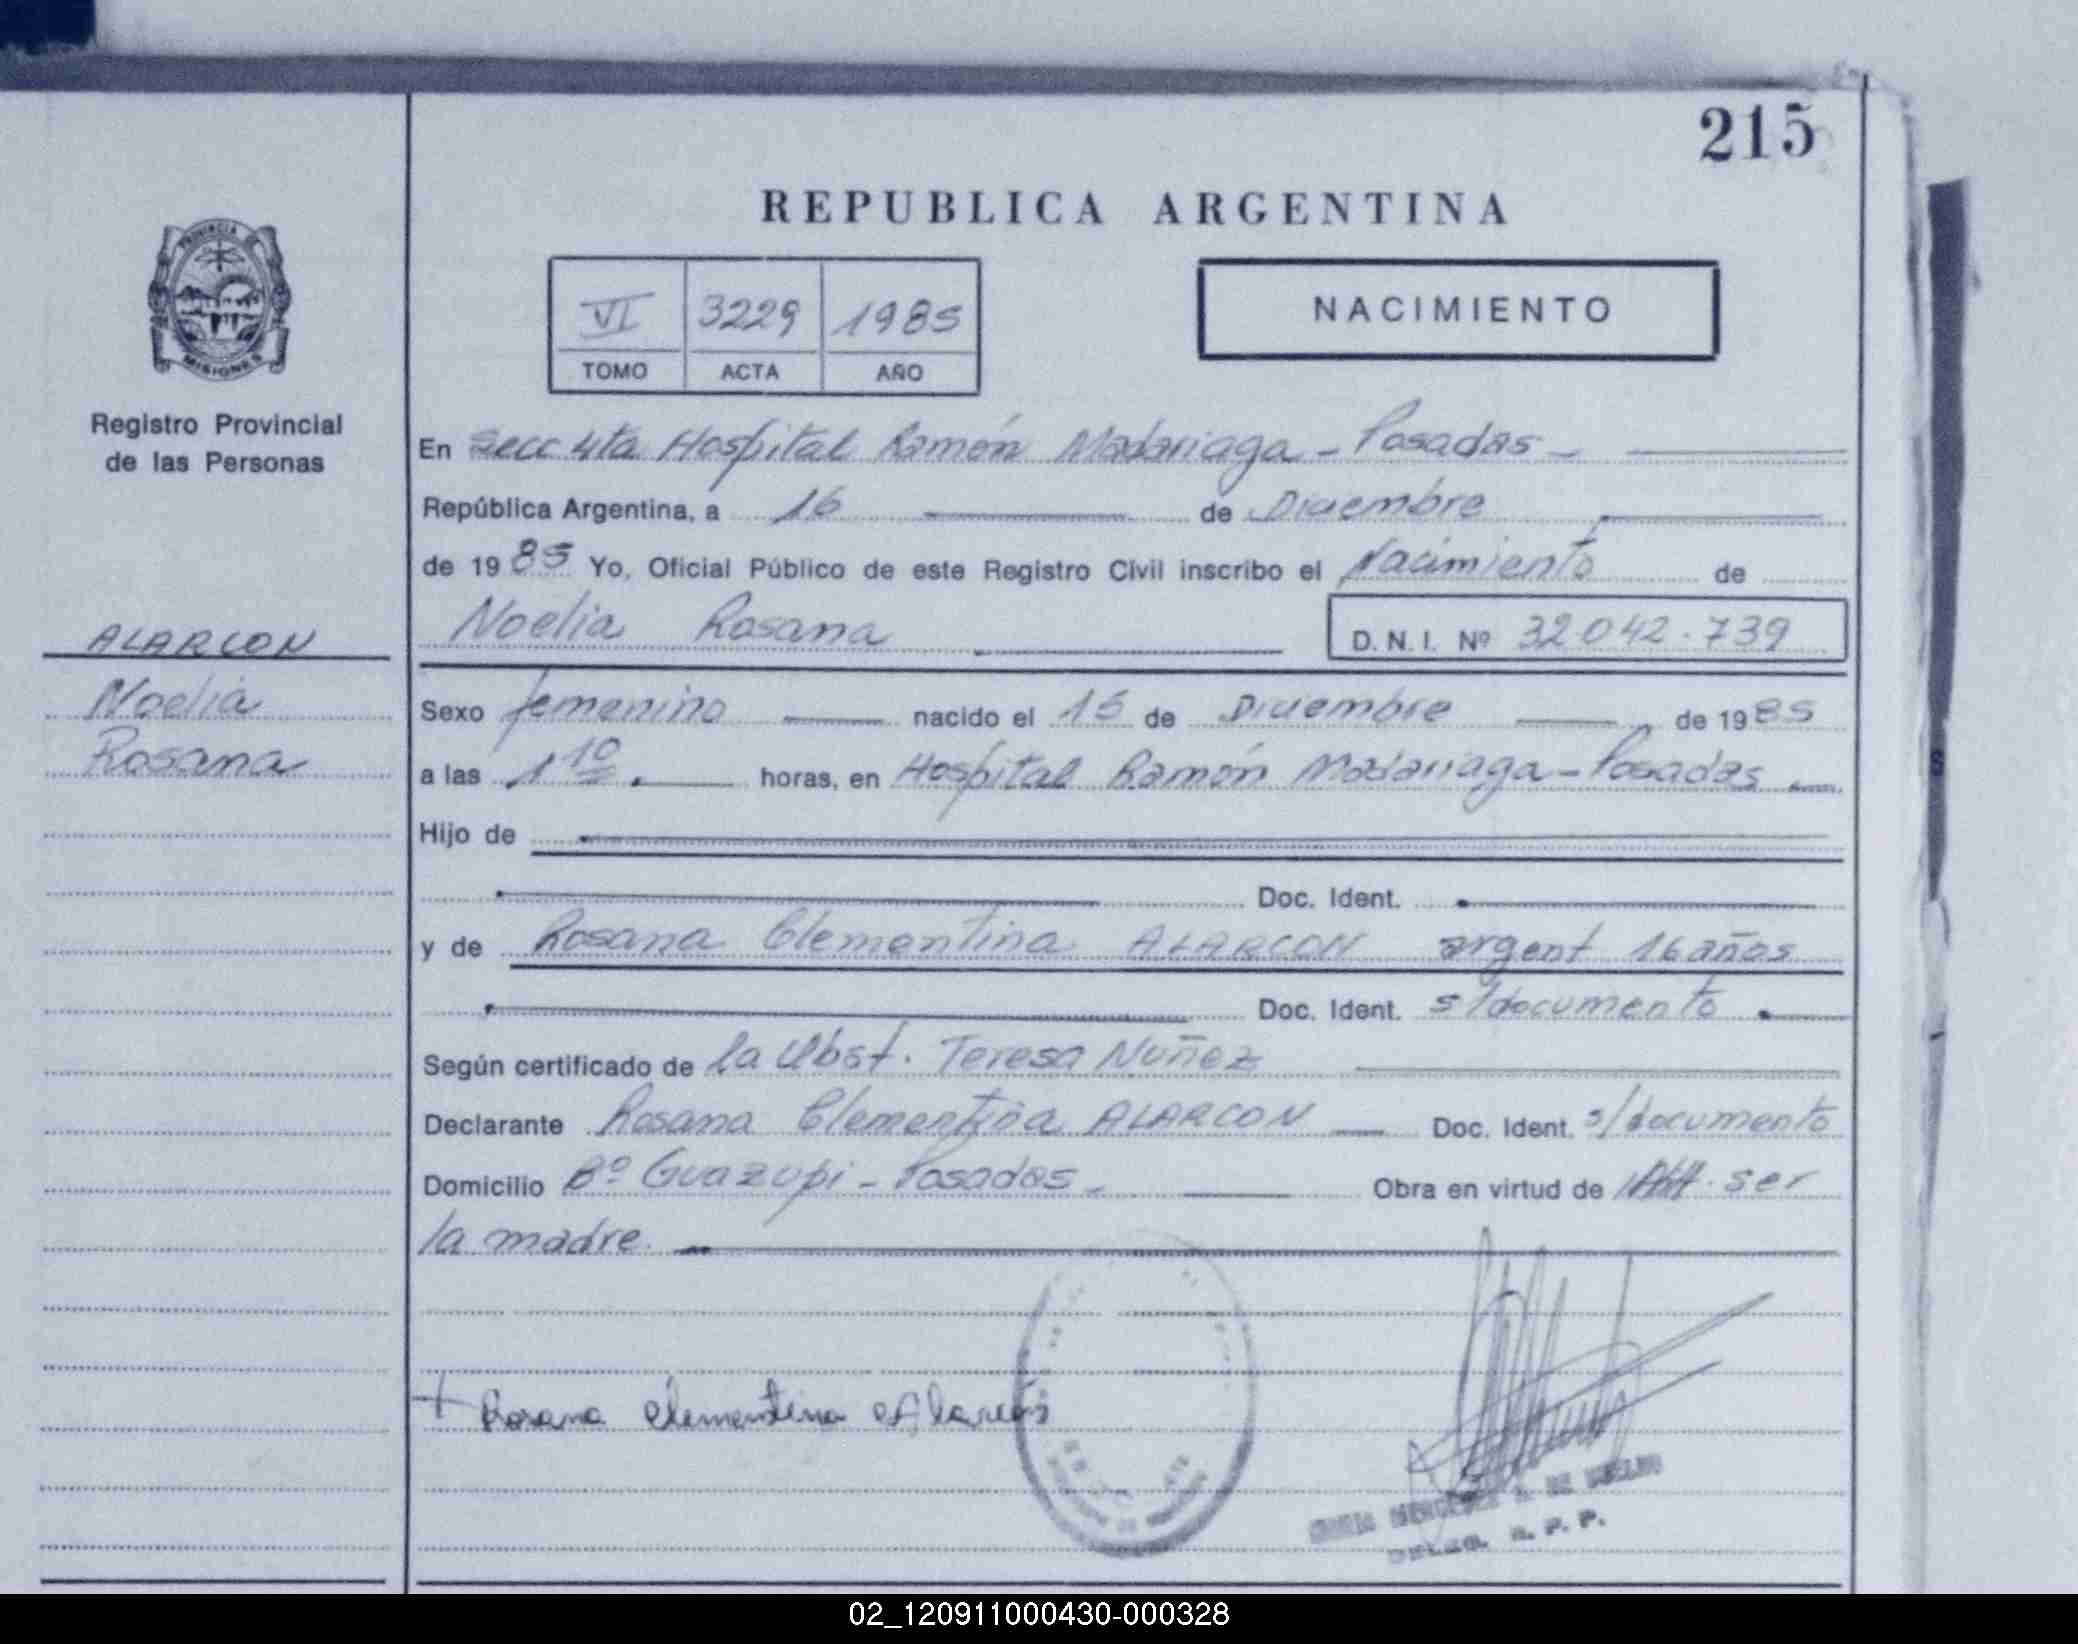 215
REPUBLICA ARGENTINA
PROVINCIA DE
MISIONES
Registro Provincial
de las Personas
VI 3229 1985
TOMO ACTA AÑO
NACIMIENTO
En Secc 4ta Hospital Ramón Madariaga - Posadas -
República Argentina, a 16 de Diciembre
de 1985 Yo, Oficial Público de este Registro Civil inscribo el Nacimiento de
Noelia Rosana D. N. I. Nº 32.042.739
ALARCON
Noelia
Rosana
Sexo femenino nacido el 15 de Diciembre de 1985
a las 1 10 horas, en Hospital Ramón Madariaga - Posadas
Hijo de
Doc. Ident.
y de Rosana Clementina ALARCON argent 16 años
Doc. Ident. s/documento
Según certificado de la Obst. Teresa Nuñez
Declarante Rosana Clementina ALARCON Doc. Ident. s/documento
Domicilio Bº Guazupi - Posadas - Obra en virtud de ser
la madre.
Rosana Clementina Alarcón
MERCEDES DE
DELEG. R. P. P.
02_120911000430-000328